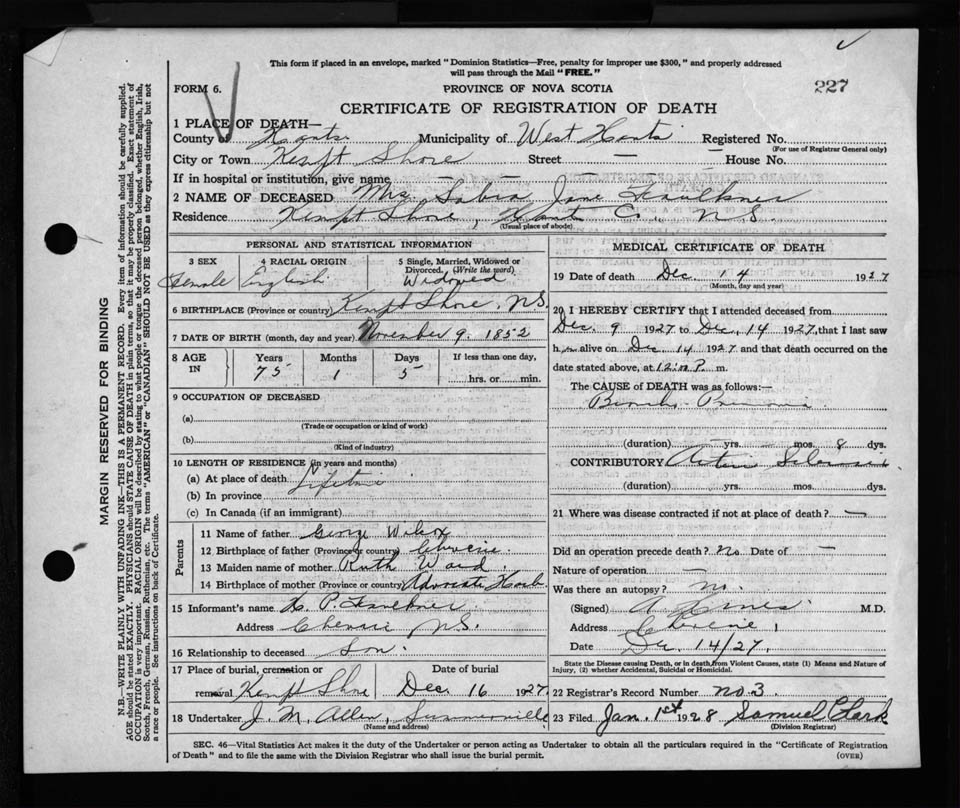 This form if placed in an envelope, marked "Dominion Statistics—Free, penalty for improper use $300," and properly addressed
will pass through the Mail "FREE."
227
FORM 6.
PROVINCE OF NOVA SCOTIA
CERTIFICATE OF REGISTRATION OF DEATH
1 PLACE OF DEATH—
County of Hants Municipality of West Hants Registered No.
(For use of Registrar General only)
City or Town Kempt Shore Street — House No. —
If in hospital or institution, give name — — —
2 NAME OF DECEASED Mrs. Sabra Jane Faulkner
Residence Kempt Shore, Hants Co. N.S.
(Usual place of abode)
PERSONAL AND STATISTICAL INFORMATION
3 SEX 4 RACIAL ORIGIN 5 Single, Married, Widowed or
Divorced, (Write the word)
Female English Widowed
6 BIRTHPLACE (Province or country) Kempt Shore, N.S.
7 DATE OF BIRTH (month, day and year) November 9. 1852
8 AGE IN Years Months Days If less than one day,
75 1 5 hrs. or min.
9 OCCUPATION OF DECEASED
(a)
(Trade or occupation or kind of work)
(b)
(Kind of industry)
10 LENGTH OF RESIDENCE (in years and months)
(a) At place of death Lifetime
(b) In province
(c) In Canada (if an immigrant)
Parents
11 Name of father George Wilcox
12 Birthplace of father (Province or country) Cheverie.
13 Maiden name of mother Ruth Ward
14 Birthplace of mother (Province or country) Advocate Harb
15 Informant's name H. P. Faulkner
Address Cheverie N.S.
16 Relationship to deceased Son.
17 Place of burial, cremation or Date of burial
removal Kempt Shore Dec 16 1927
18 Undertaker J. M. Allen, Summerville
(Name and address)
MEDICAL CERTIFICATE OF DEATH
19 Date of death Dec. 14 1927
(Month, day and year)
20 I HEREBY CERTIFY that I attended deceased from
Dec. 9 1927 to Dec. 14 1927, that I last saw
h alive on Dec. 14 1927 and that death occurred on the
date stated above, at 12: P. m.
The CAUSE of DEATH was as follows:—
Broncho Pneumonia
(duration) yrs. — mos. 8 dys.
CONTRIBUTORY Arterio Sclerosis
(duration) yrs. mos. dys.
21 Where was disease contracted if not at place of death? —
Did an operation precede death? No Date of —
Nature of operation —
Was there an autopsy? no.
(Signed) M.D.
Address Cheverie,
Date Dec. 14/27.
State the Disease causing Death, or in death from Violent Causes, state (1) Means and Nature of
Injury, (2) whether Accidental, Suicidal or Homicidal.
22 Registrar's Record Number no. 3.
23 Filed Jan. 1st 1928 Samuel Clark
(Division Registrar)
SEC. 46—Vital Statistics Act makes it the duty of the Undertaker or person acting as Undertaker to obtain all the particulars required in the "Certificate of Registration
of Death" and to file the same with the Division Registrar who shall issue the burial permit. (OVER)
MARGIN RESERVED FOR BINDING
N.B.—WRITE PLAINLY WITH UNFADING INK—THIS IS A PERMANENT RECORD. Every item of information should be carefully supplied.
AGE should be stated EXACTLY. PHYSICIANS should STATE CAUSE OF DEATH in plain terms, so that it may be properly classified. Exact statement of
OCCUPATION is very important. RACIAL ORIGIN will be described by stating to what people or tongue the deceased person belonged, whether English, Irish,
Scotch, French, German, Russian, Ruthenian, etc. The terms "AMERICAN" or "CANADIAN" SHOULD NOT BE USED as they express citizenship but not
a race or people. See instructions on back of Certificate.